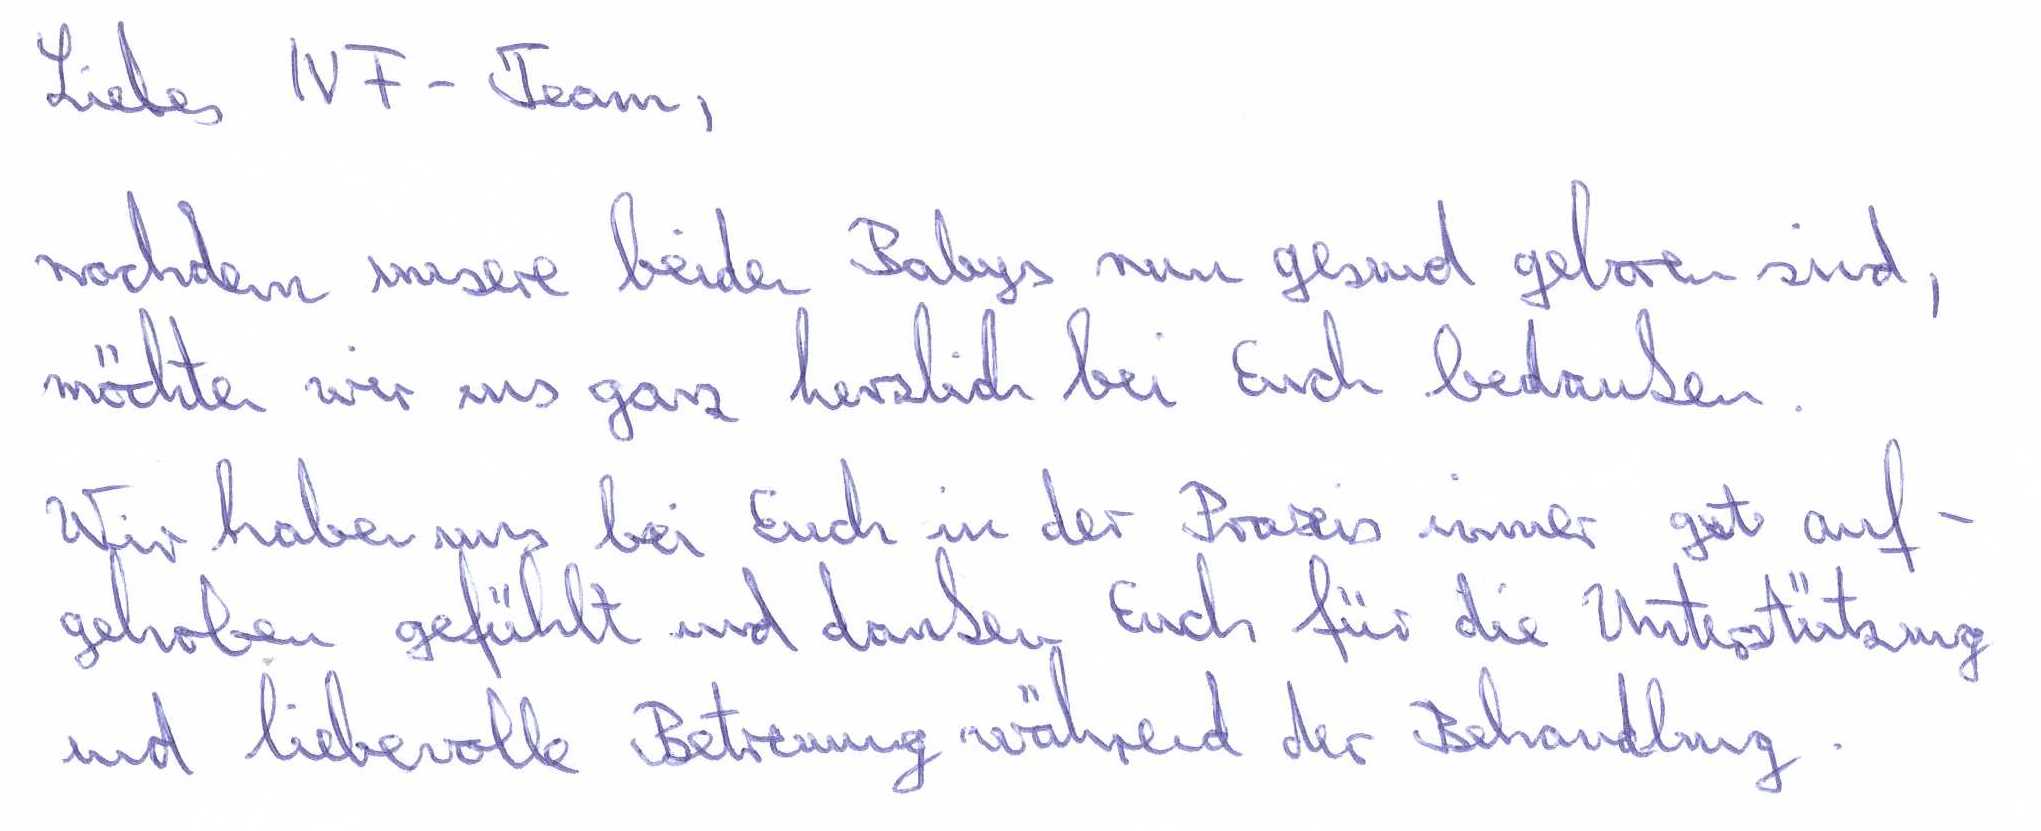 Liebes IVF-Team,
nachdem unsere beiden Babys nun gesund geboren sind,
möchten wir uns ganz herzlich bei Euch bedanken.
Wir haben uns bei Euch in der Praxis immer gut auf-
gehoben gefühlt und danken Euch für die Unterstützung
und liebevolle Betreuung während der Behandlung.